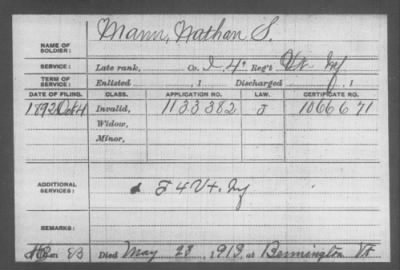 NAME OF SOLDIER: Mann, Nathan S.
SERVICE: Late rank, Co. I. 4" Reg't Vt. Inf
TERM OF SERVICE: Enlisted , 1 Discharged , 1
DATE OF FILING. CLASS. APPLICATION NO. LAW. CERTIFICATE NO.
1892 Oct 4 Invalid, 1133382 J 1066671
Widow,
Minor,
ADDITIONAL SERVICES: F 4 Vt. Inf
REMARKS:
Died May 23, 1913, at Bennington Vt